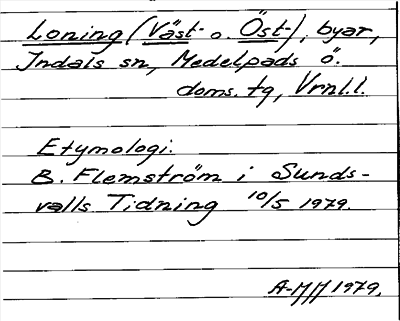 Loning (Väst- o. Öst-), byar,
Indals sn, Medelpads ö.
doms. tg, Vrnl.l.
Etymologi.
B. Flemström i Sunds-
valls Tidning 10/5 1979.
A-MM 1979.